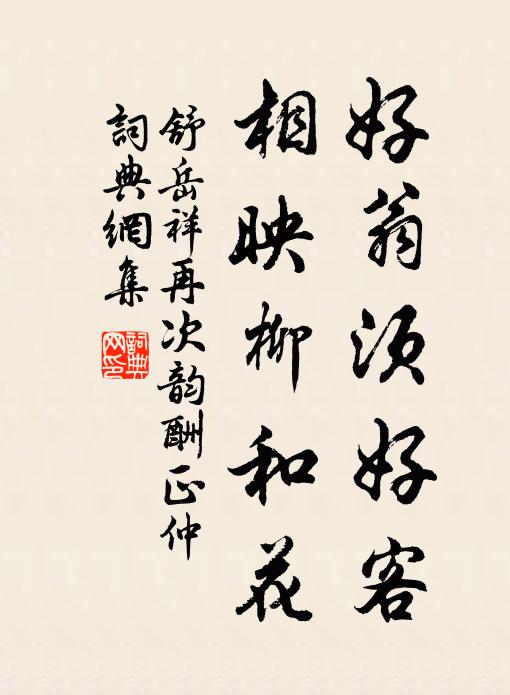 好翁须好客
相映柳和花
舒岳祥再次韵酬正仲
词典網集
詞典
网印